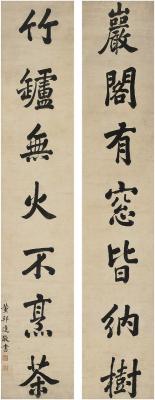 巖閣有窓皆納樹
竹鑪無火不烹茶
董邦達敬書